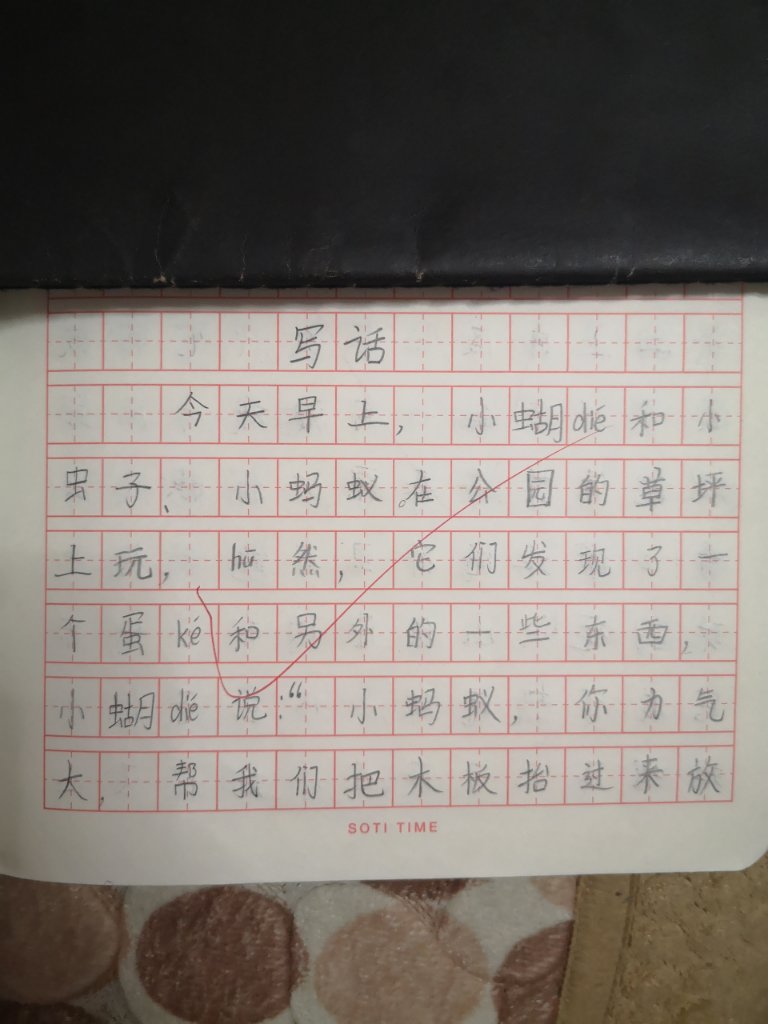 写话
今天早上，小蝴dié和小
虫子、小蚂蚁。在公园的草坪
上玩，hū然，它们发现了一
个蛋ké和另外的一些东西，
小蝴dié说：“小蚂蚁，你力气
大，帮我们把木板抬过来放
SOTI TIME